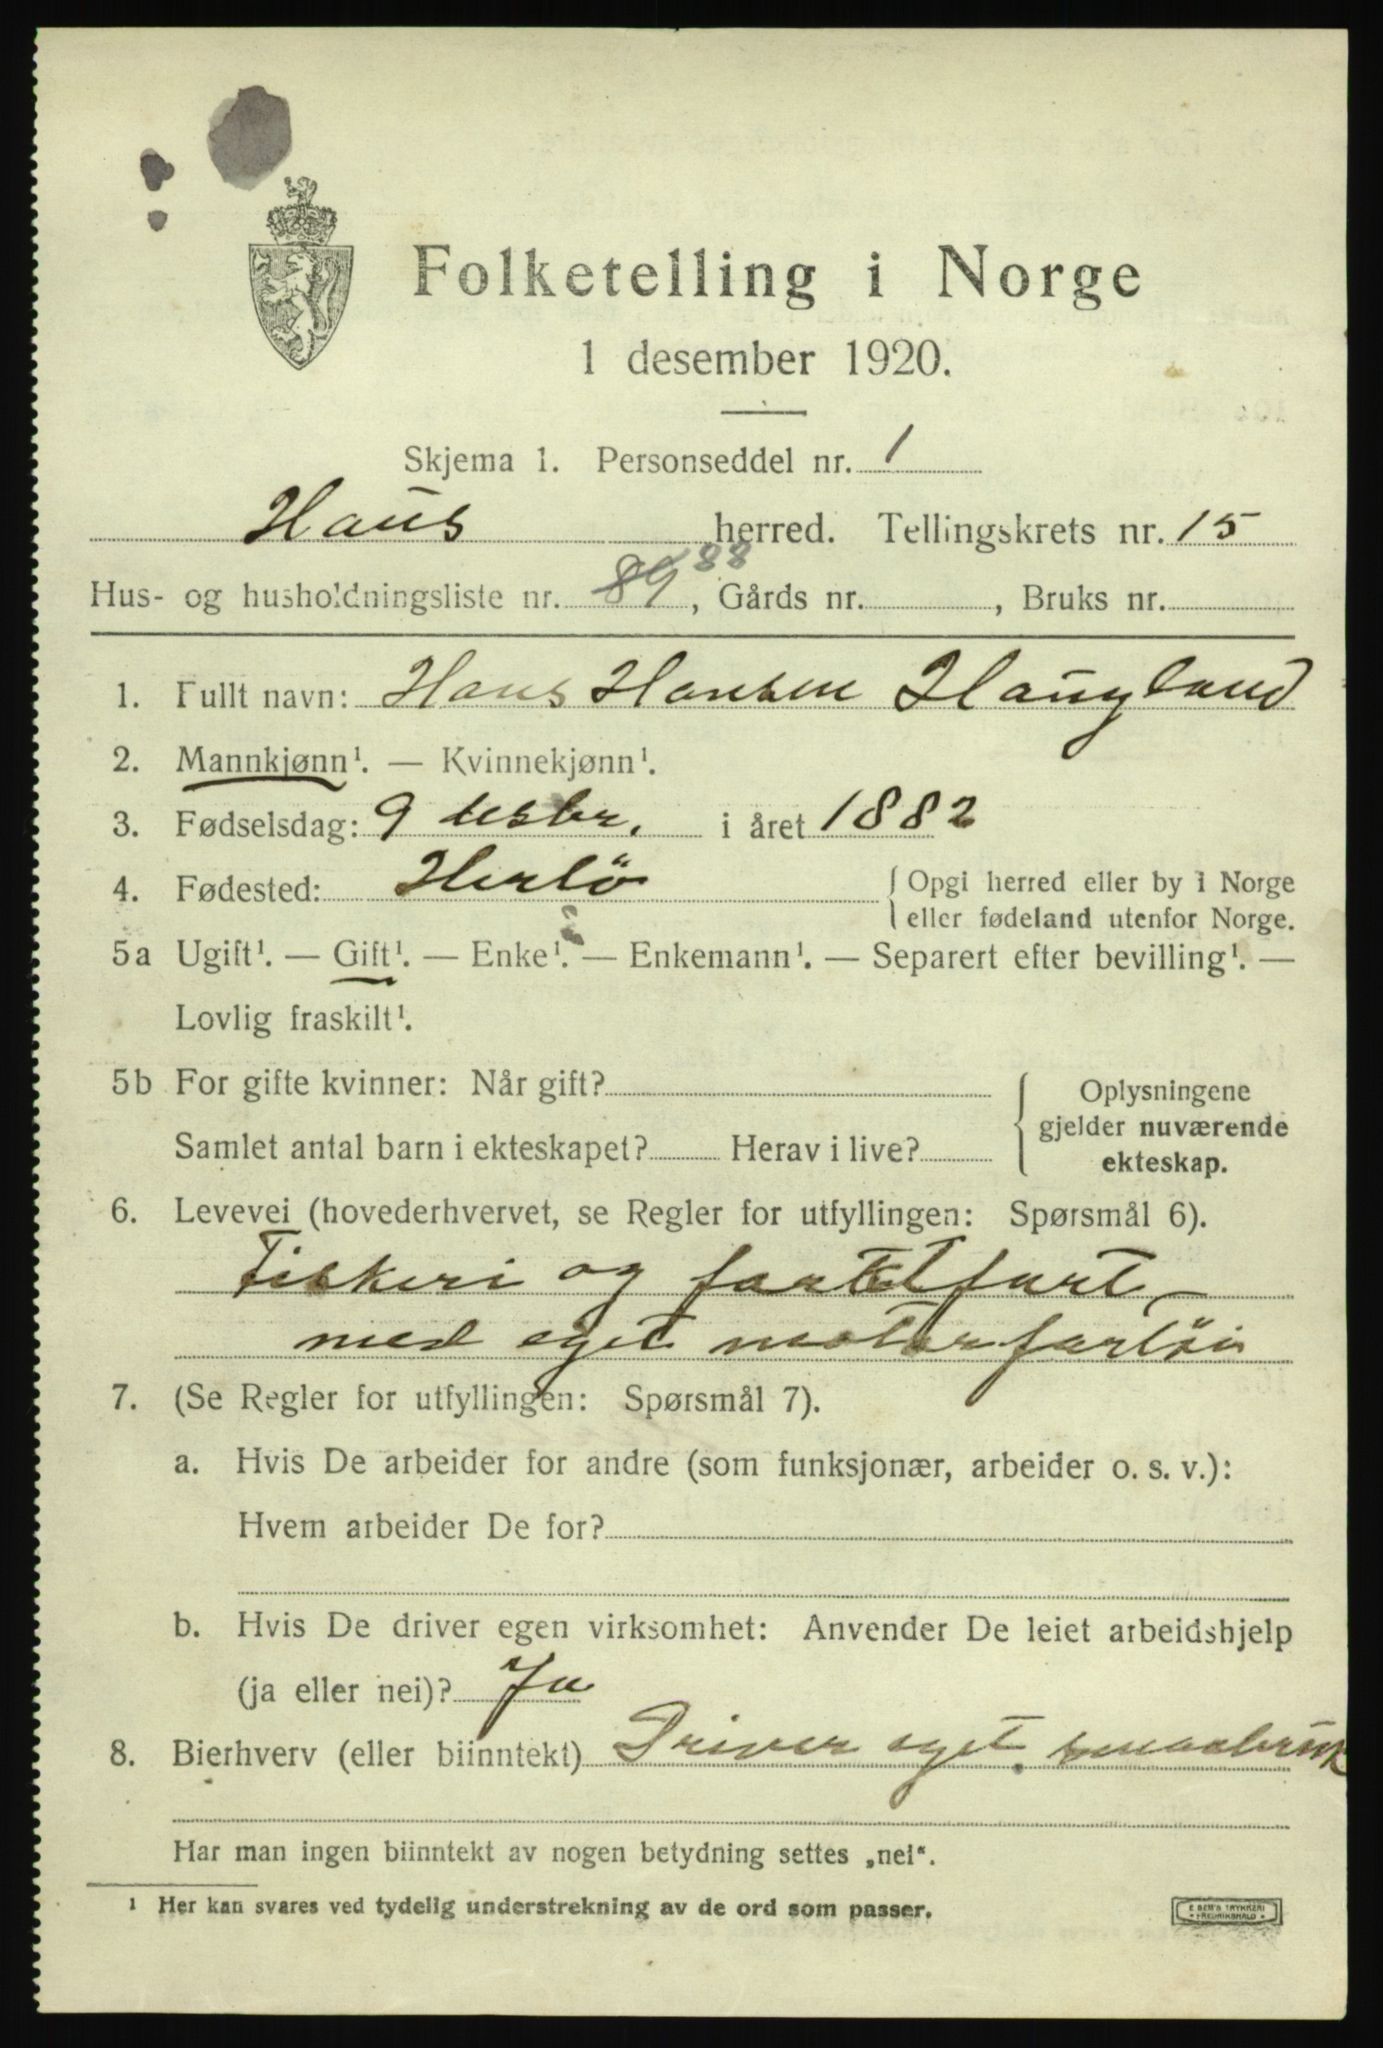 Folketelling i Norge
1 desember 1920.
Skjema 1. Personseddel nr. 1
Haus herred. Tellingskrets nr. 15
Hus- og husholdningsliste nr. 89 88, Gårds nr. , Bruks nr.
1. Fullt navn: Hans Hansen Haugland
2. Mannkjønn¹. — Kvinnekjønn¹.
3. Fødselsdag: 9 desbr. i året 1882
4. Fødested: Herlö { Opgi herred eller by i Norge
eller fødeland utenfor Norge.
5a Ugift¹. — Gift¹. — Enke¹. — Enkemann¹. — Separert efter bevilling¹. —
Lovlig fraskilt¹.
5b For gifte kvinner: Når gift? { Oplysningene
gjelder nuværende
Samlet antal barn i ekteskapet? Herav i live?
ekteskap.
6. Levevei (hovederhvervet, se Regler for utfyllingen: Spørsmål 6).
Fiskeri og fraktfart
med eget motorfartöi
7. (Se Regler for utfyllingen: Spørsmål 7).
a. Hvis De arbeider for andre (som funksjonær, arbeider o. s. v.):
Hvem arbeider De for?
b. Hvis De driver egen virksomhet: Anvender De leiet arbeidshjelp
(ja eller nei)? Ja
8. Bierhverv (eller biinntekt) Driver eget smaabruk
Har man ingen biinntekt av nogen betydning settes „nei“.
¹ Her kan svares ved tydelig understrekning av de ord som passer.
E SEM'S TRYKKERI
• FREDRIKSHALD •